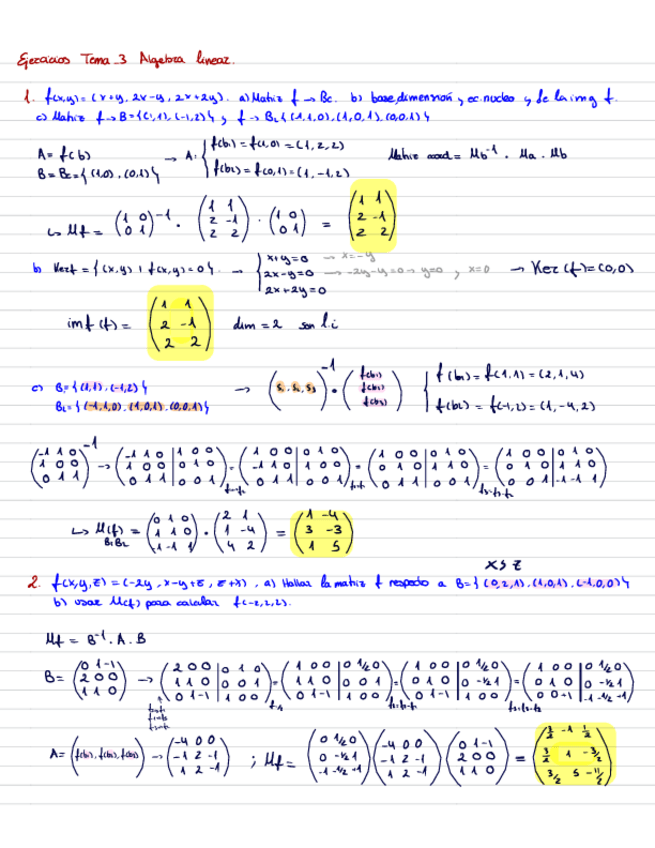 Ejercicios Tema 3 Algebra linear.
1. f(x,y)=(x+y, 2x-y, 2x+2y). a) Matriz f → Bc. b) base, dimensión y ec. nucleo y de la img f.
c) Matriz f → B={(1,1),(-1,2)} y f → B2{(1,1,0),(1,0,1),(0,0,1)}
A = f(b) → A: { f(b1) = f(1,0) = (1,2,2) Matriz coord = Mb⁻¹ · Ma · Mb
B = Bc = {(1,0),(0,1)} f(b2) = f(0,1) = (1,-1,2)
↳ Mf = (1 0 / 0 1)⁻¹ · (1 1 / 2 -1 / 2 2) · (1 0 / 0 1) = (1 1 / 2 -1 / 2 2)
b) Kerf = {(x,y) | f(x,y)=0}. → { x+y=0 → x=-y
2x-y=0 → -2y-y=0 → y=0, x=0 → Ker(f)=(0,0)
2x+2y=0
im f(f) = (1 1 / 2 -1 / 2 2) dim = 2 son li
c) B={(1,1),(-1,2)} → ( , , )⁻¹ · (f(b1) / f(b2) / f(b3)) { f(b1) = f(1,1) = (2,1,4)
B2={(-1,1,0),(1,0,1),(0,0,1)} f(b2) = f(-1,2) = (1,-4,2)
(-1 1 0 / 1 0 0 / 0 1 1)⁻¹ → (-1 1 0 | 1 0 0 / 1 0 0 | 0 1 0 / 0 1 1 | 0 0 1) = (1 0 0 | 0 1 0 / -1 1 0 | 1 0 0 / 0 1 1 | 0 0 1) = (1 0 0 | 0 1 0 / 0 1 0 | 1 1 0 / 0 1 1 | 0 0 1) = (1 0 0 | 0 1 0 / 0 1 0 | 1 1 0 / 0 0 1 | -1 -1 1)
↳ M(f) B1B2 = (0 1 0 / 1 1 0 / -1 -1 1) · (2 1 / 1 -4 / 4 2) = (1 -4 / 3 -3 / 1 5)
x y z
2. f(x,y,z)=(-2y, x-y+z, z+x), a) Hallar la matriz f respecto a B={(0,2,1),(1,0,1),(-1,0,0)}
b) usar M(f) para calcular f(-2,2,2).
Mf = B⁻¹ · A · B
B = (0 1 -1 / 2 0 0 / 1 1 0) → (2 0 0 | 0 1 0 / 1 1 0 | 0 0 1 / 0 1 -1 | 1 0 0) = (1 0 0 | 0 1/2 0 / 1 1 0 | 0 0 1 / 0 1 -1 | 1 0 0) = (1 0 0 | 0 1/2 0 / 0 1 0 | 0 -1/2 1 / 0 1 -1 | 1 0 0) = (1 0 0 | 0 1/2 0 / 0 1 0 | 0 -1/2 1 / 0 0 +1 | -1 -1/2 +1)
A = (f(b1), f(b2), f(b3)) → (-4 0 0 / -1 2 -1 / 1 2 -1) ; Mf = (0 1/2 0 / 0 -1/2 1 / -1 -1/2 +1) (-4 0 0 / -1 2 -1 / 1 2 -1) (0 1 -1 / 2 0 0 / 1 1 0) = (3/2 -1 1/2 / 3/2 1 -3/2 / 3/2 5 -11/2)